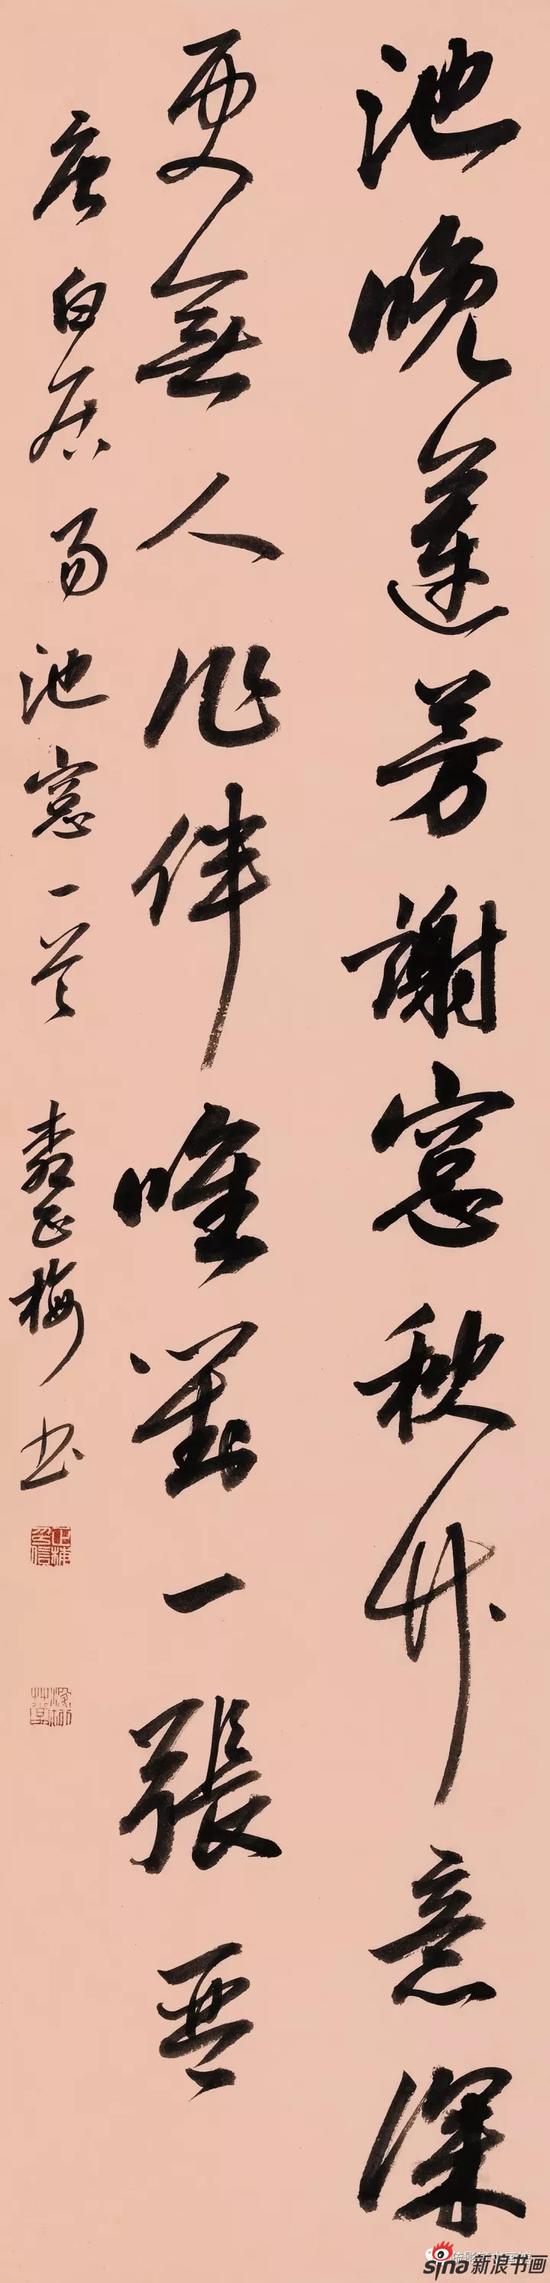 池晚蓮芳謝窓秋竹意深
更無人作伴唯對一張琴
唐白居易池窓一首 正梅书
sina新浪书画